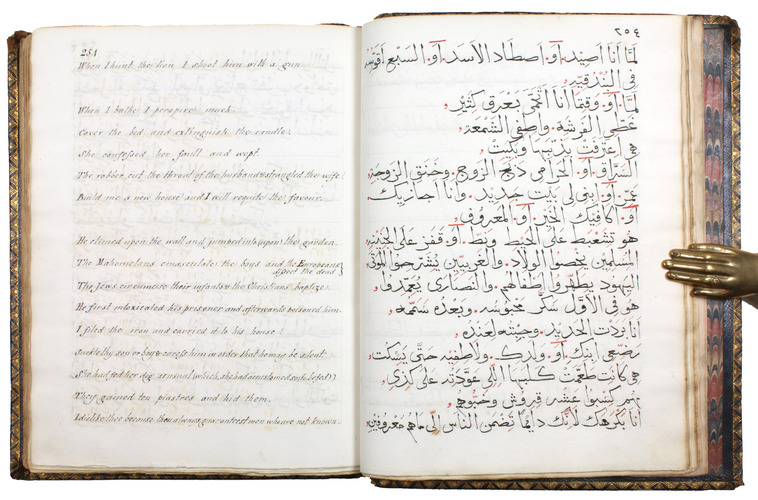 254
When I hunt the lion I shoot him with a gun.
When I bathe I perspire much.
Cover the bed and extinguish the candle.
She confessed her fault and wept.
The robber cut the throat of the husband & strangled the wife.
Build me a new house and I will requite the favour.
He climed upon the wall and jumped into (upon) the garden.
The Mahometans emasculate the boys and the Europeans
dissect the dead
The Jews circumcise their infants & the Christians baptize.
He first intoxicated his prisoner and afterwards poisoned him.
I filed the iron and carried it to his house.
Suckle thy son or boy & caress him in order that he may be silent.
She had fed her dog as usual (which she had accustomed
They gained ten piastres and hid them.
I dislike thee because thou always guarantest men who are not known.
٢٥٤
لمّا أنا أصيد. أو. اصطاد الأسد. أو. السبع
في البندقيه
لمّا. أو. وقيما أنا اتحمّم بعرق كثير
غطّي الفرشة. واطفي الشمعة
هي اعترفت بذنبها وبكيت
السرّاق. أو. الحرامي دبح الزوج. وخنق الزوجة
عمّر. أو. ابني لي بيت جديد. وأنا أجازيك
أو. أكافيك الخير. أو. المعروف
هو تشعبط على الحيط ونطّ. أو. قفز على الجنينه
المسلمين يخصوا الولاد. والغربيين يشرحوا الموتى
اليهود يطهّروا اطفالهم. والنصارى يعمّدوا
هو في الأوّل سكّر محبوسه. وبعده سمّمه
أنا بردت الحديد. وجيبته لعنده
رضّعي ابنك. أو. ولدك. والطفيه حتى يسكت
هي كانت طعمت كلبها الى عوّدته على كدي
هم كسبوا عشر قروش وخبّوهم
أنا بكرهك لأنك دايمًا تضمن الناس الى ماهم معروفين